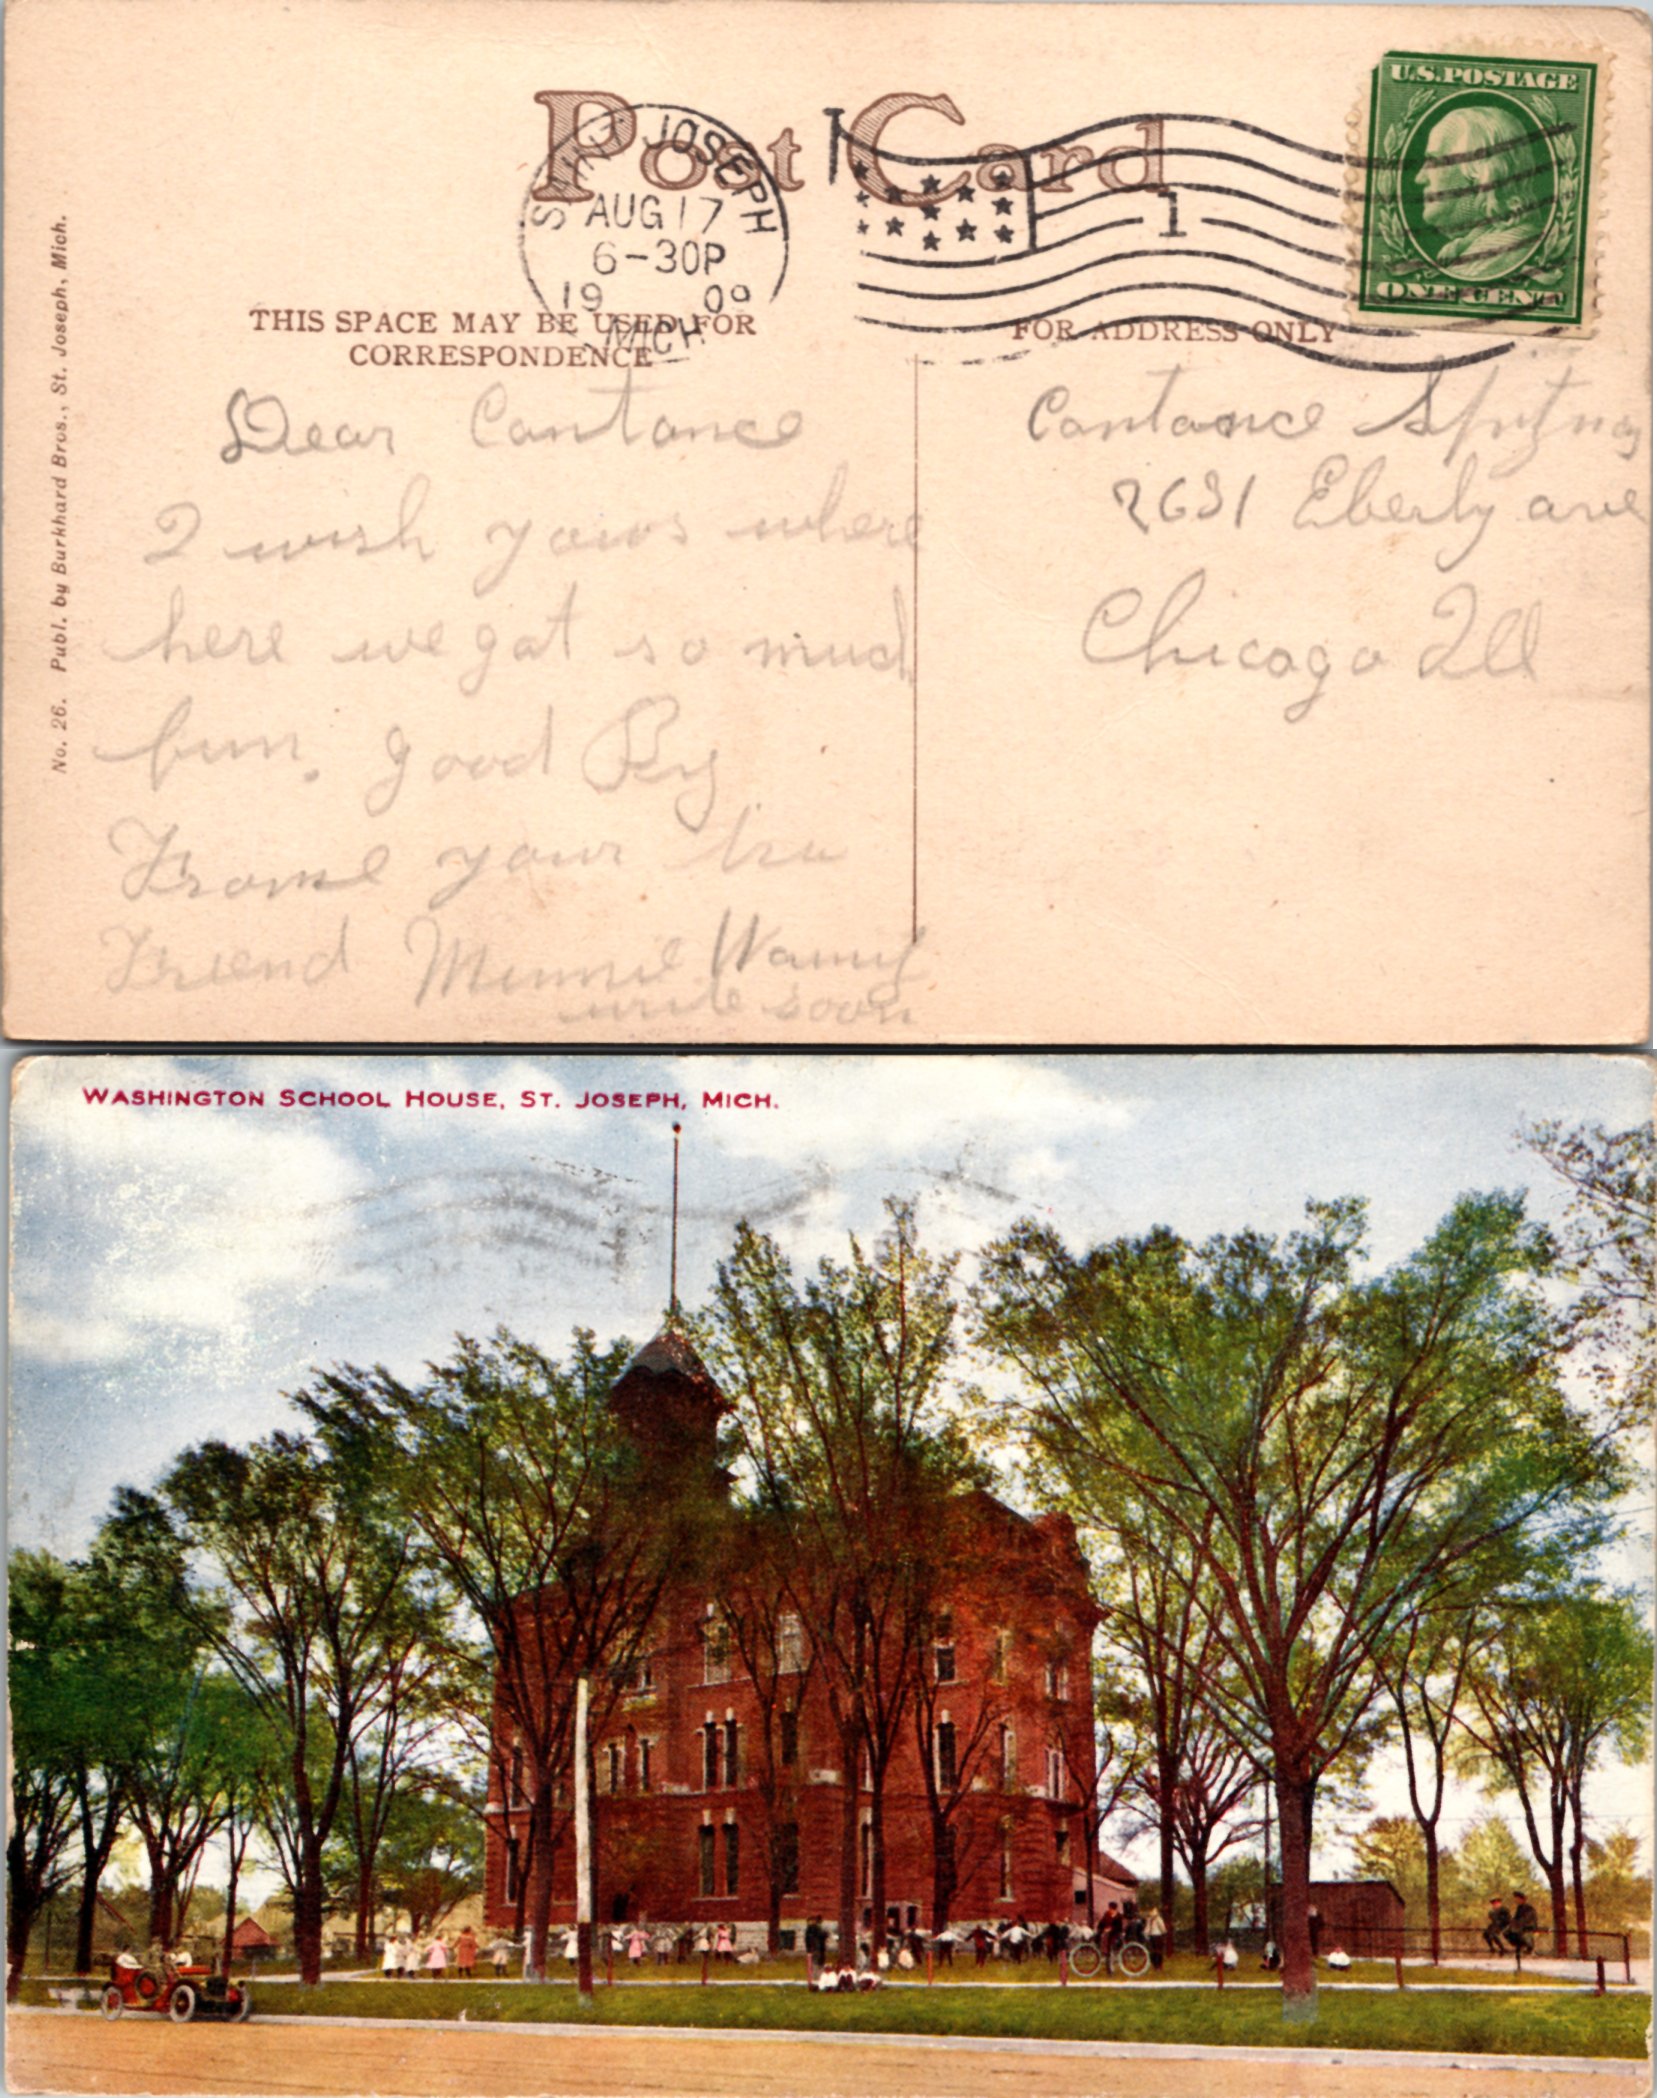 Post Card
SAINT JOSEPH
AUG 17
6-30P
19 09
MICH
1
U.S. POSTAGE
ONE CENT
THIS SPACE MAY BE USED FOR
CORRESPONDENCE
FOR ADDRESS ONLY
No. 26. Publ. by Burkhard Bros., St. Joseph, Mich.
Dear Contance
I wish yous where
here we gat so much
fun. good By
Frome your tru
Friend Minnie
write soon
Contance
2631 Eberly ave
Chicago Ill
WASHINGTON SCHOOL HOUSE, ST. JOSEPH, MICH.